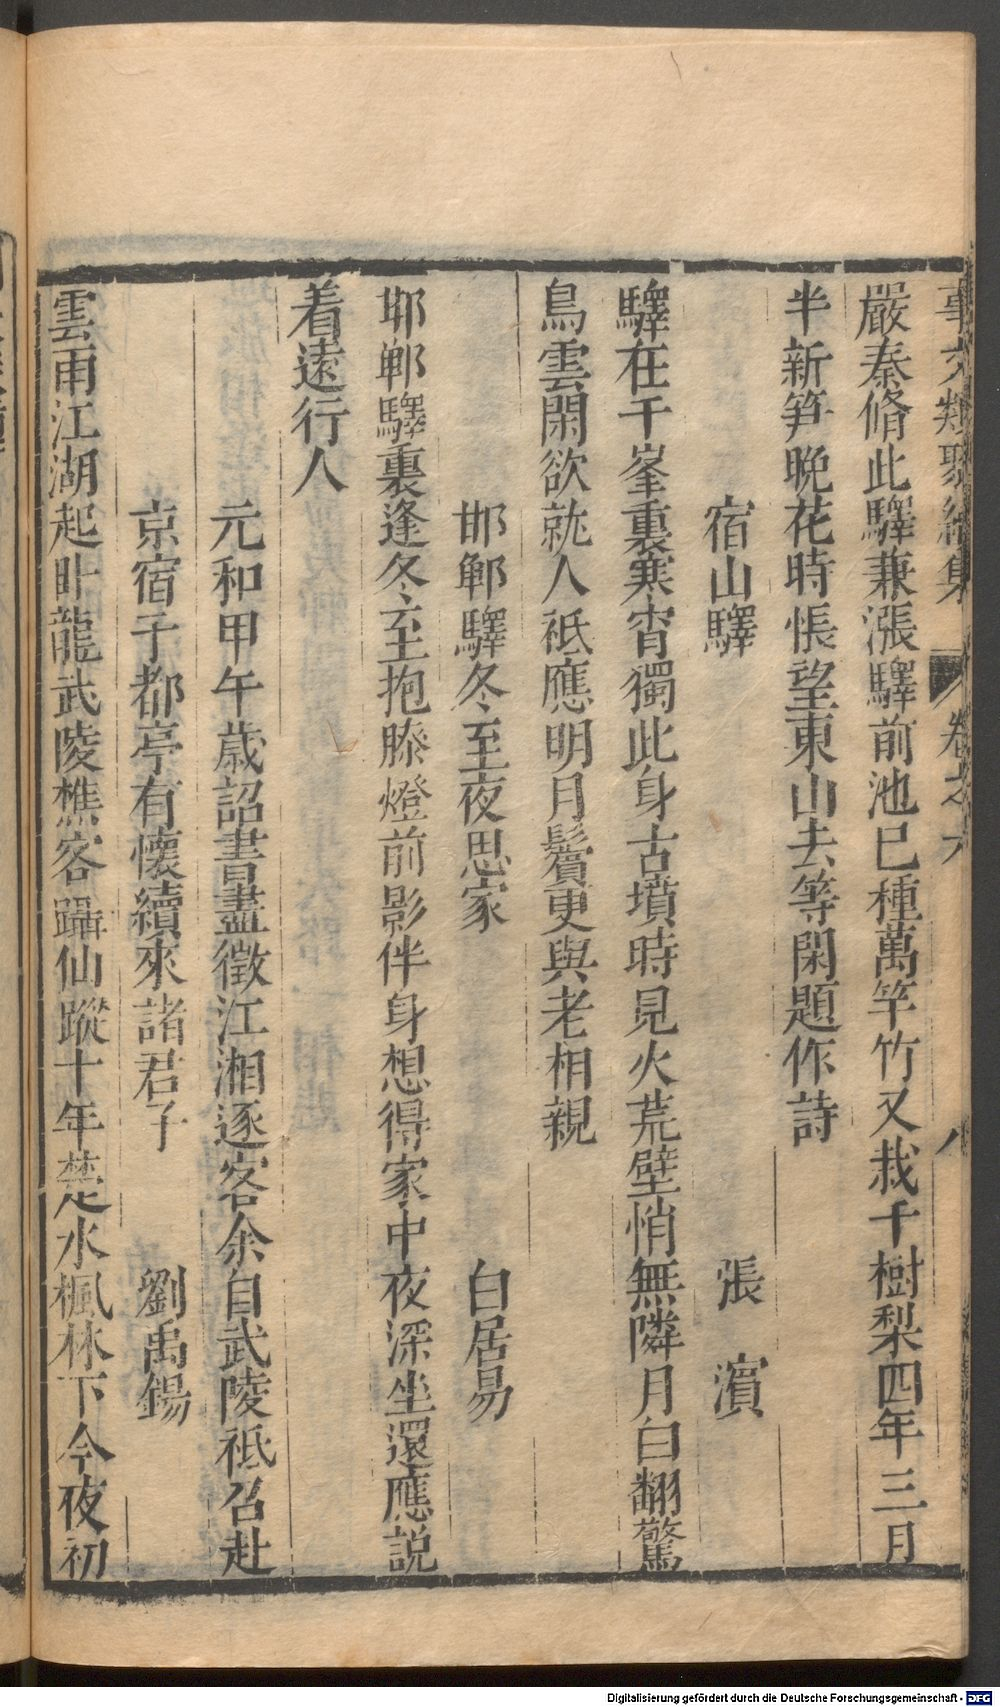 事文類聚續集 卷之六 八
嚴秦脩此驛兼漲驛前池已種萬竿竹又栽千樹梨四年三月
半新笋晩花時悵望東山去等閑題作詩
宿山驛 張濵
驛在千峯裏寒宵獨此身古墳時見火荒壁悄無隣月白翻驚
鳥雲閑欲就人袛應明月鬢更與老相親
邯鄲驛冬至夜思家 白居易
邯鄲驛裏逢冬至抱膝燈前影伴身想得家中夜深坐還應説
着遠行人
元和甲午歳詔書盡徵江湘逐客余自武陵袛召赴
京宿于都亭有懷續來諸君子 劉禹錫
雲雨江湖起卧龍武陵樵客躡仙蹤十年楚水楓林下今夜初
Digitalisierung gefördert durch die Deutsche Forschungsgemeinschaft - DFG